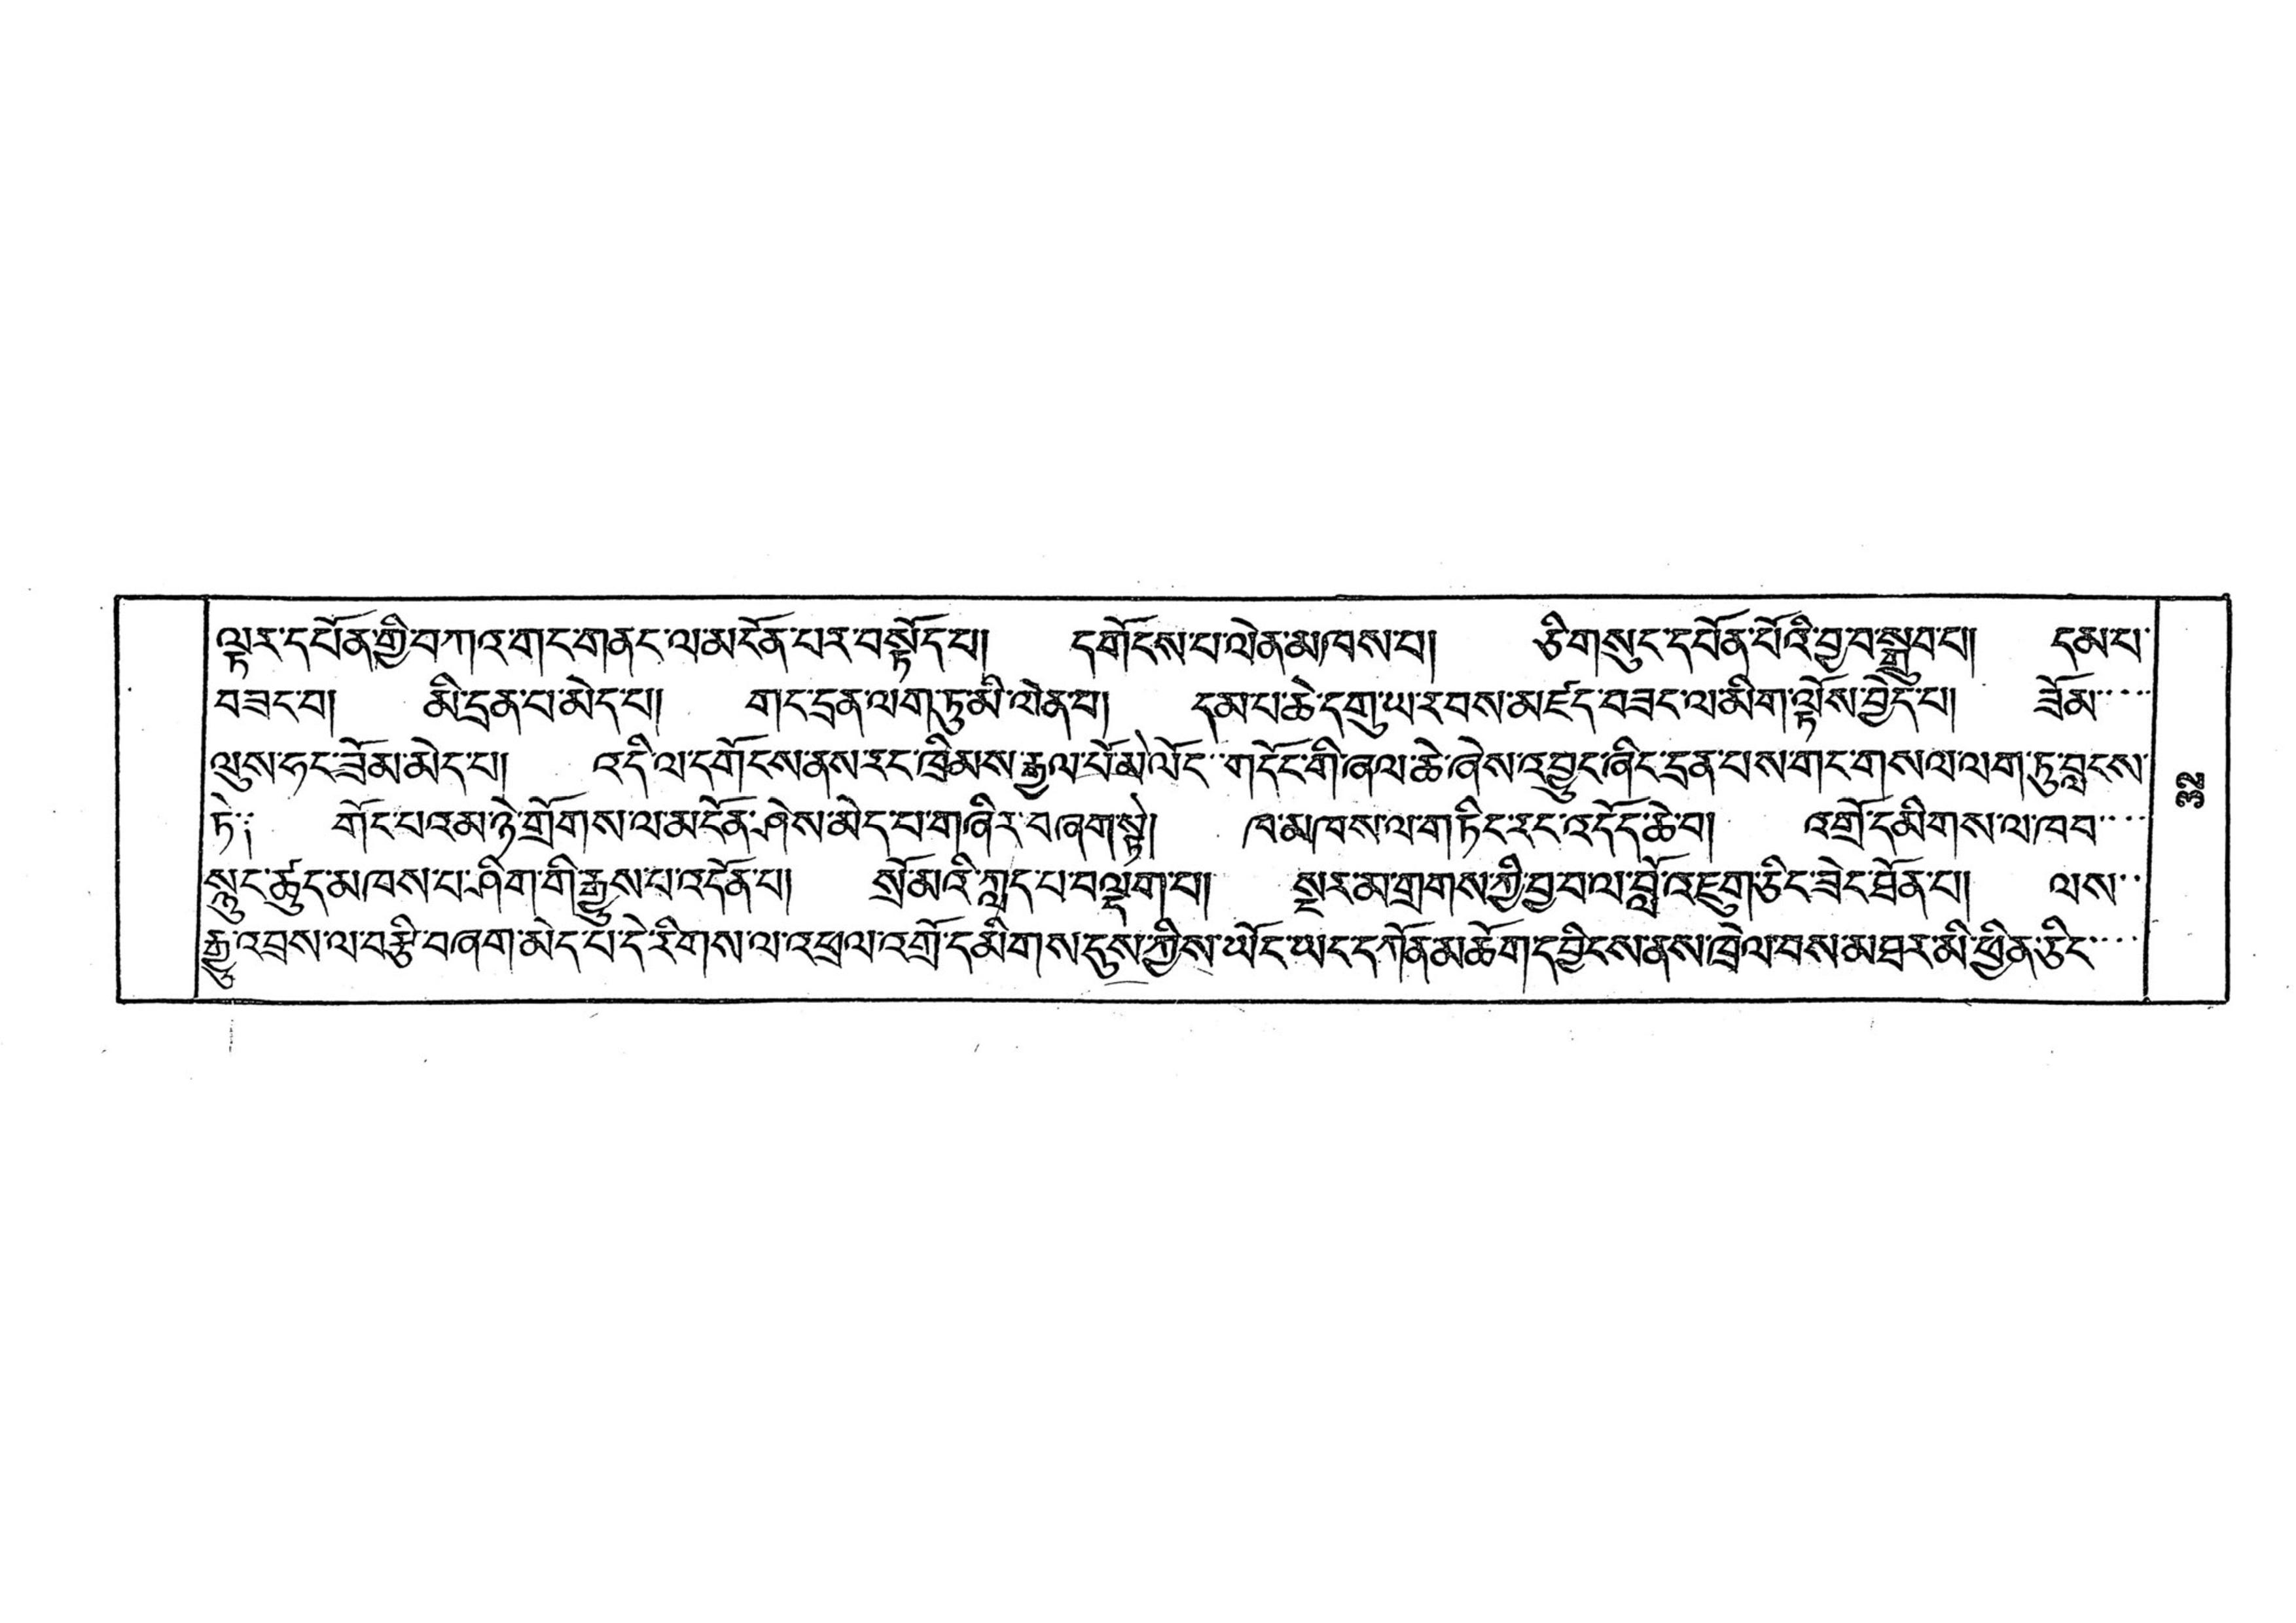 ལྟར་དཔོན་གྱི་བཀའ་གང་གནང་ལ་མངོན་པར་བསྟོད་པ། དགོངས་པ་ལེན་མཁས་པ། ཅི་གསུང་དཔོན་པོའི་བྱ་བ་སྒྲུབ་པ། དམ་པ་
བཟང་བ། མི་དྲན་པ་མེད་པ། གང་དྲན་ལག་ཏུ་མི་ལེན་པ། དམ་པ་ཆེ་དགུ་ཡ་རབས་མཛད་བཟང་ལ་མིག་ལྟོས་བྱེད་པ། ཟོམ་
ལུས་ཧང་ཟོམ་མེད་པ། འདི་ལ་དགོངས་ནས་རང་ཁྲིམས་རྒྱལ་པོ་མེ་ལོང་གདོང་གི་ཞལ་ཆེ་ཞེས་འབྱུང་ཞིང་དྲན་པས་གང་གསལ་ལག་ཏུ་བླངས་
ཏེ། གོང་པའམ་ཉེ་གྲོགས་ལ་མངོན་ཤེས་མེད་པ་ག་ཞིར་བཞག་སྟེ། ཁ་མཁས་ལ་གཏིང་རང་འདོད་ཆེ་བ། འགྲོ་དམིགས་ལ་ཁབ་
སྣུང་ཚུད་མཁས་པ་ཤིག་གི་རྒྱུས་པ་འདོན་པ། སྲོམའི་ཀླད་པ་བལྡག་པ། སྔར་མ་གྲགས་ཀྱི་བྱ་བ་ལ་བློ་འཇུག་ཅིང་ཟེང་ཐོན་པ། ལས་
རྒྱུ་འབྲས་ལ་བརྩི་བཞག་མེད་པ་དེ་རིགས་ལ་འཕྲལ་འགྲོ་དམིགས་དུས་ཀྱིས་ཡོང་ཡང་དཀོན་མཆོག་དབྱིངས་ནས་ཁྲེལ་བས་མཐར་མི་ཕྱིན་ཅིང་